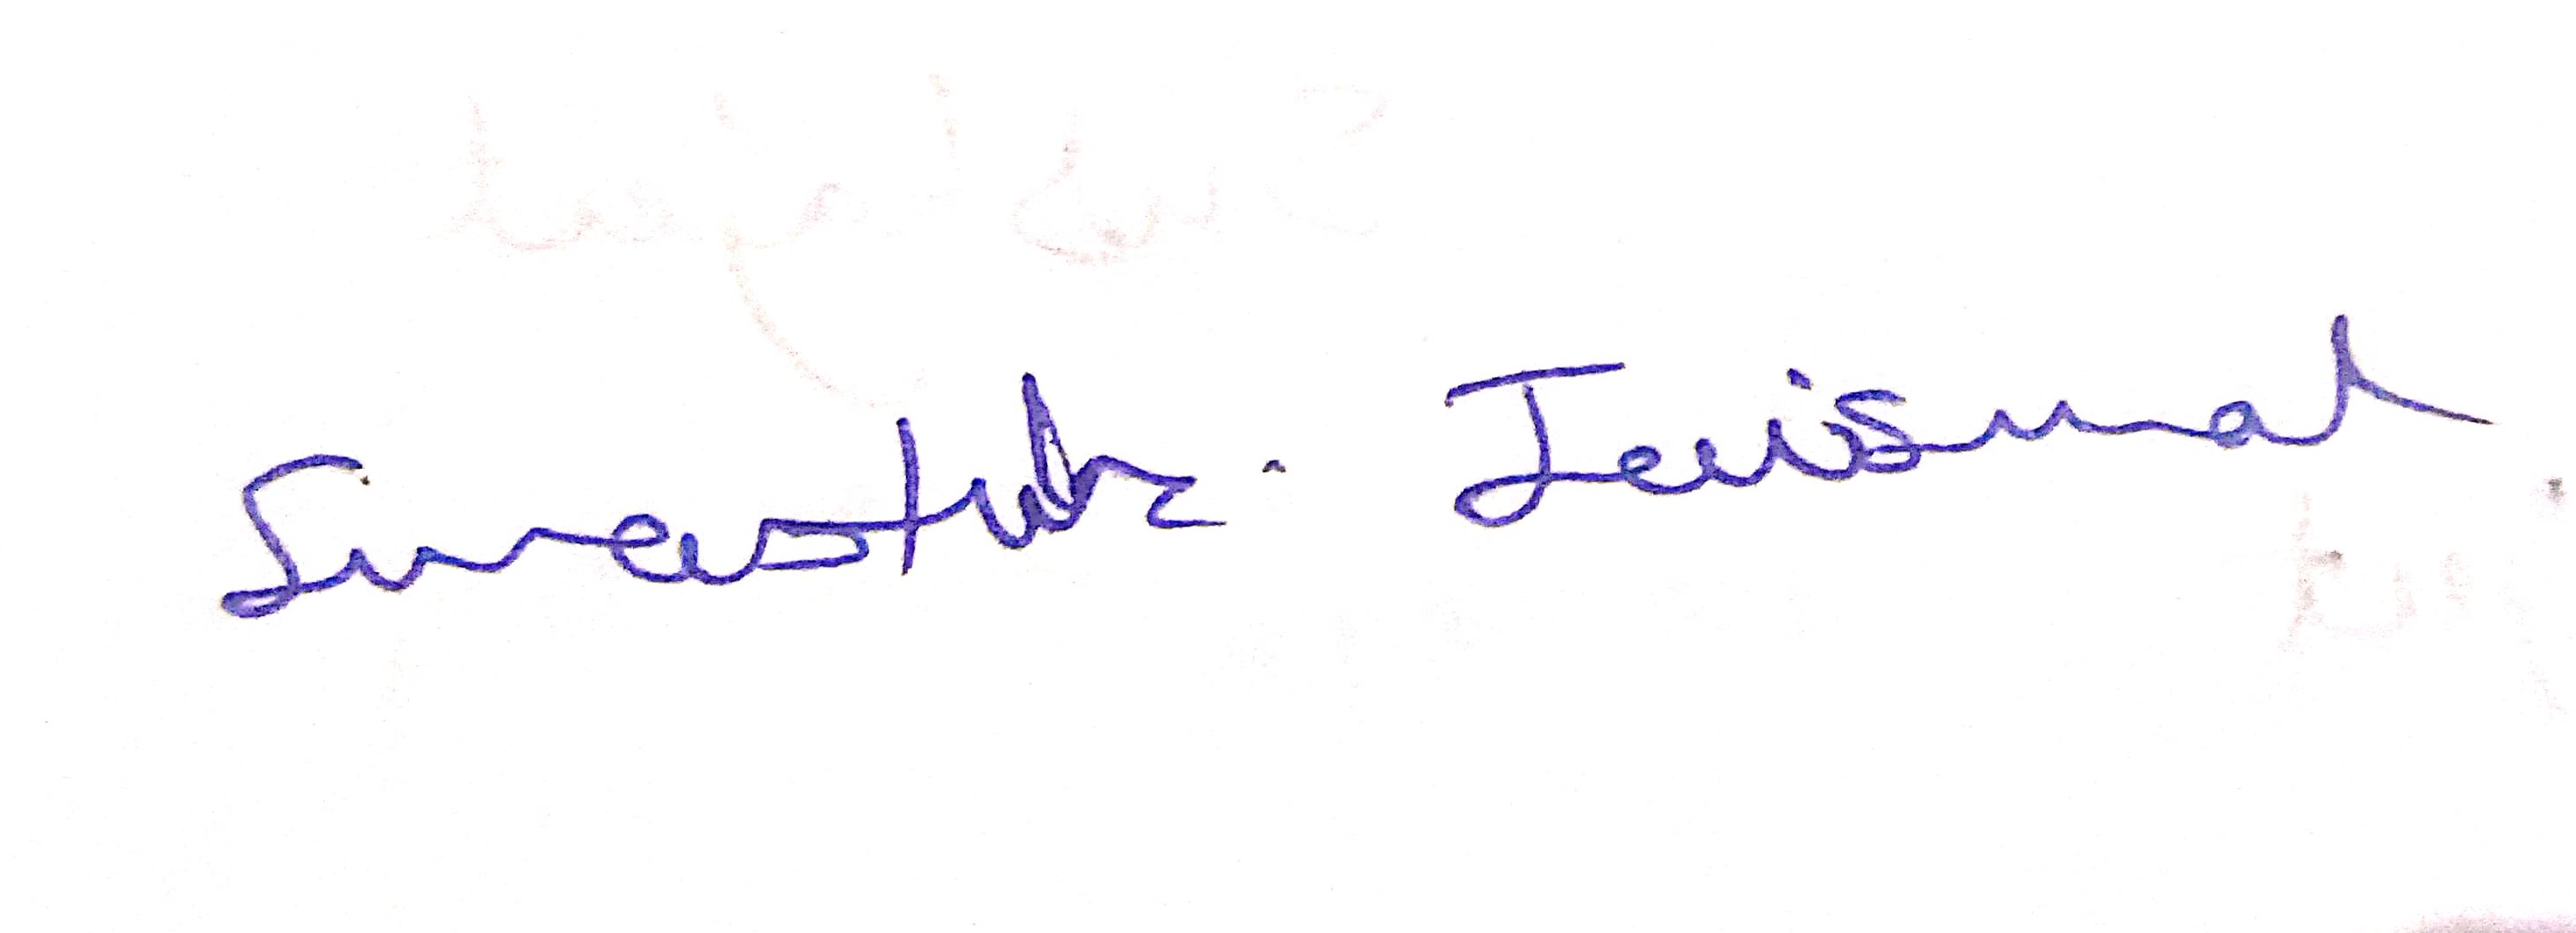 Swastik Jaiswal